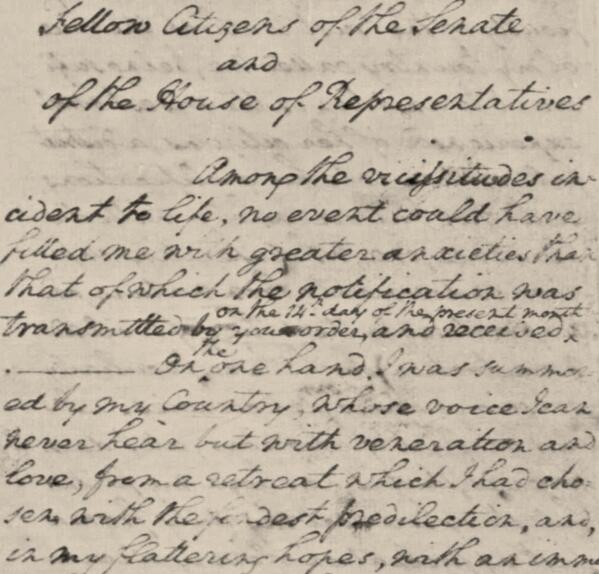 Fellow Citizens of the Senate
and
of the House of Representatives
Among the vicissitudes in-
cident to life, no event could have
filled me with greater anxieties than
that of which the notification was
on the 14th day of the present month
transmitted by your order, and received
the
On one hand, I was summon-
ed by my Country, whose voice I can
never hear but with veneration and
love, from a retreat which I had cho-
sen with the fondest predilection, and,
in my flattering hopes, with an imm